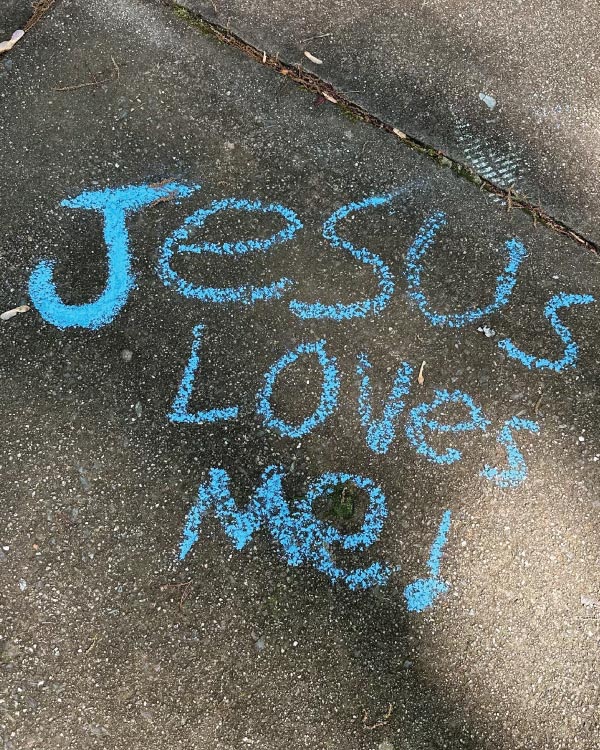 Jesus
Loves
Me!